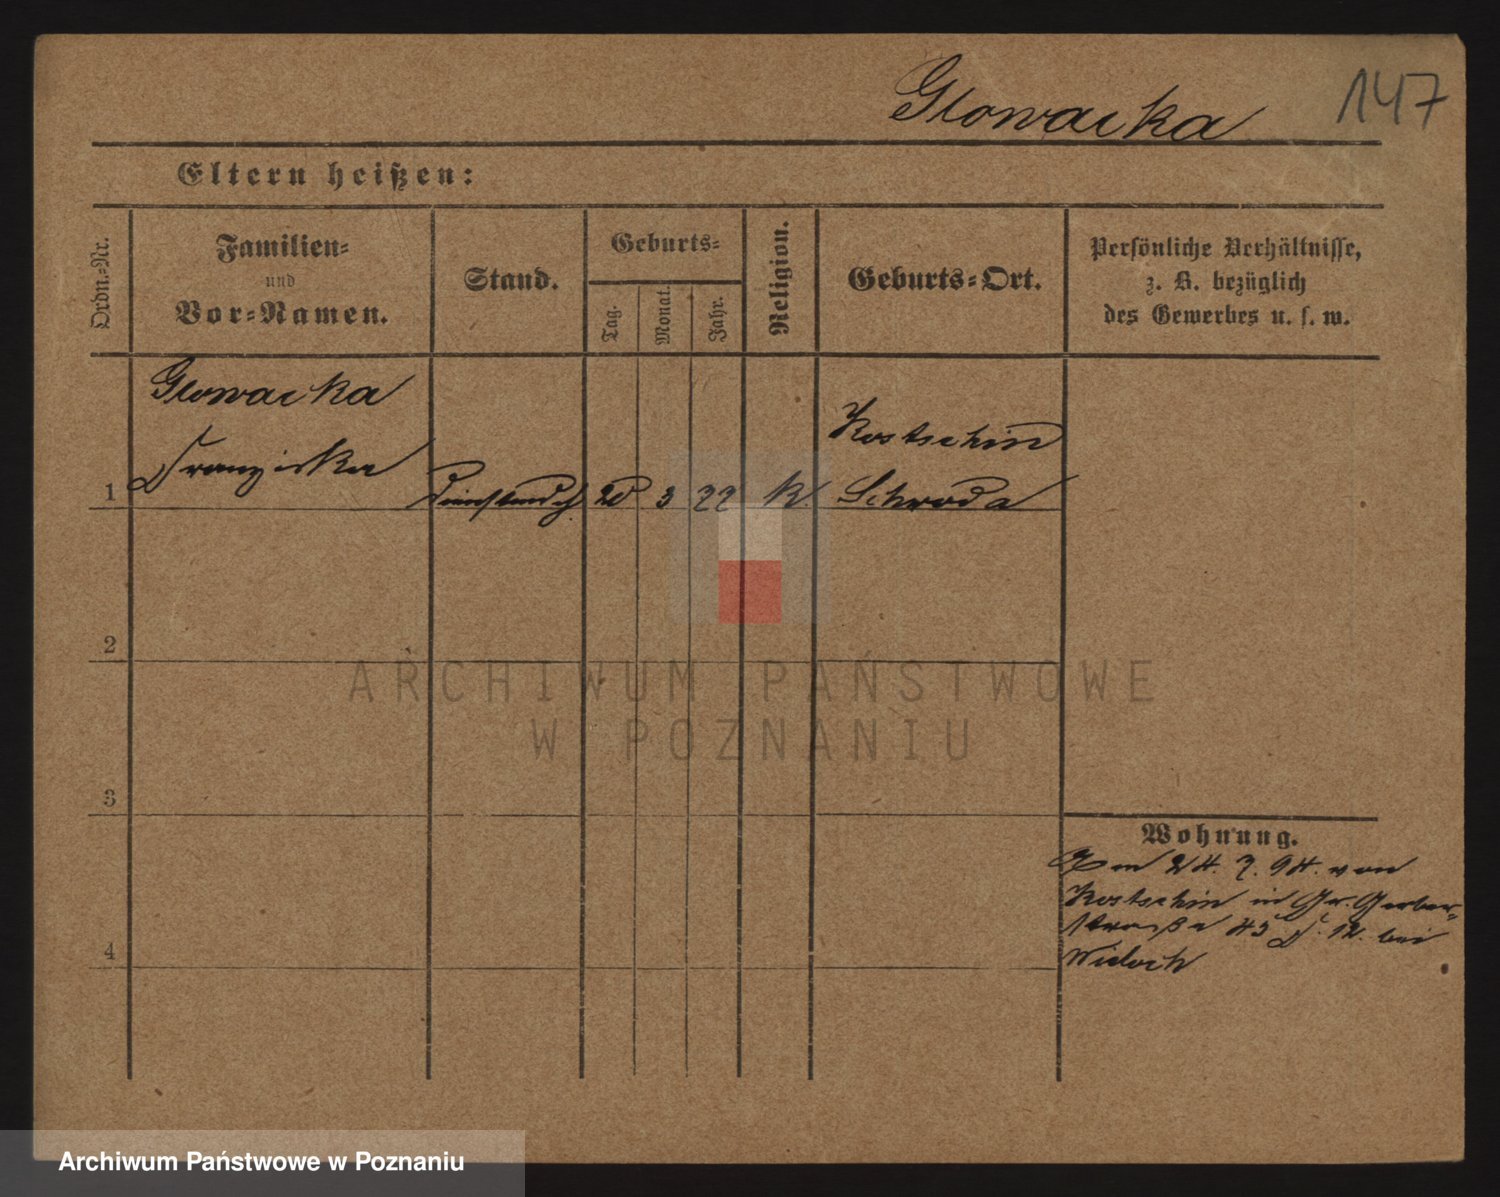 Glowacka 147
Eltern heißen:
Ordn.-Nr.
Familien-
und
Vor-Namen.
Stand.
Geburts-
Tag.
Monat.
Jahr.
Religion.
Geburts-Ort.
Persönliche Verhältnisse,
z. B. bezüglich
des Gewerbes u. s. w.
Glowacka
Franziska
1
3 22 K.
Kostschin
Schroda
2
ARCHIWUM PAŃSTWOWE
W POZNANIU
3
Wohnung.
24. 7. 94. von
Kostschin in Gr. Gerber-
straße 43 bei
Wieloch
4
Archiwum Państwowe w Poznaniu